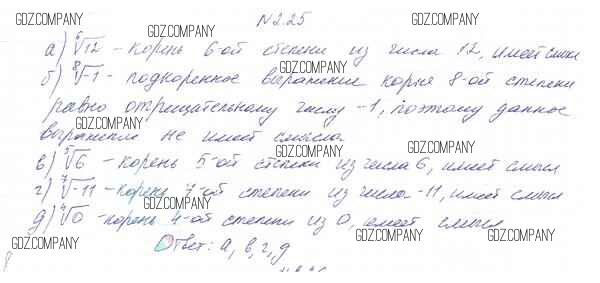 №2.25
GDZ.COMPANY
GDZ.COMPANY
GDZ.COMPANY
а) ⁶√12 - корень 6-ой степени из числа 12, имеет смысл
GDZ.COMPANY
б) ⁸√-1 - подкоренное выражение корня 8-ой степени
равно отрицательному числу -1, поэтому данное
GDZ.COMPANY
выражение не имеет смысла
GDZ.COMPANY
GDZ.COMPANY
в) ⁵√6 - корень 5-ой степени из числа 6, имеет смысл
г) ⁷√-11 - корень 7-ой степени из числа -11, имеет смысл
GDZ.COMPANY
д) ⁴√0 - корень 4-ой степени из 0, имеет смысл
GDZ.COMPANY
GDZ.COMPANY
Ответ: а, в, г, д